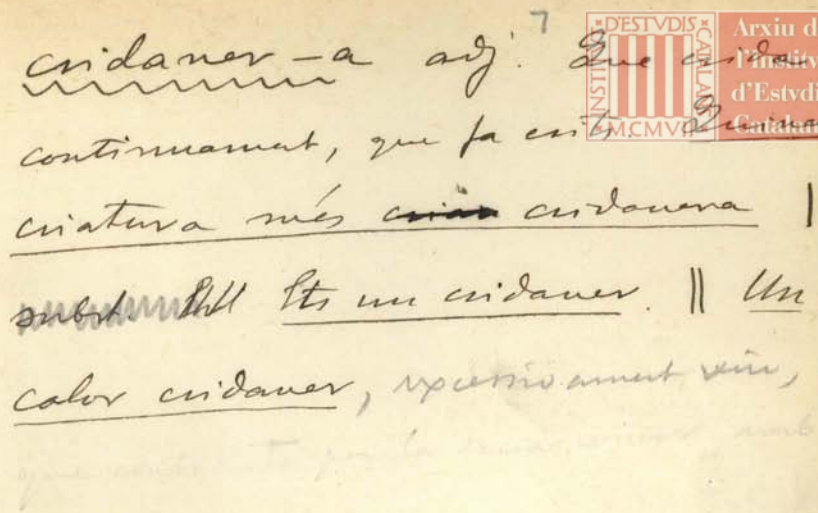 7
cridaner -a adj. Que crida
continuament, que fa crits. Quina
criatura més cridanera |
subst. Ets un cridaner. || Un
color cridaner, excessivament viu,
que per la seva
INSTITVT D'ESTVDIS CATALANS M.CM.VII
Arxiu d
l'Institv
d'Estvdi
Catalan